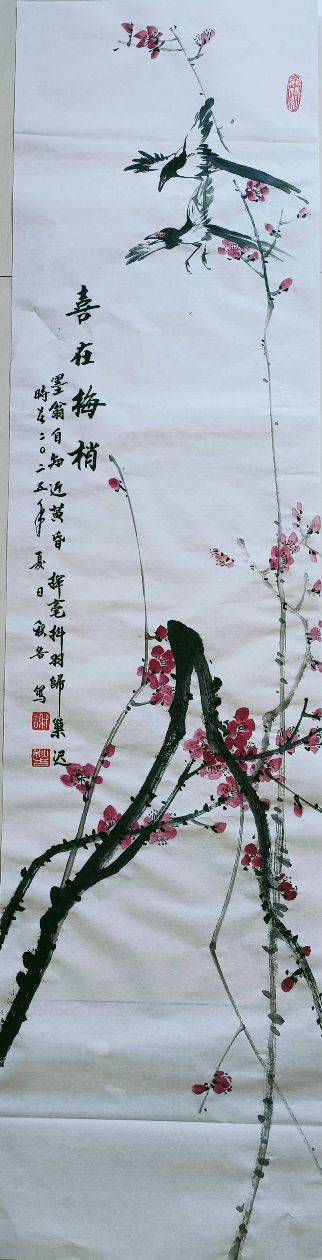 喜在梅梢
墨翁自知近黄昏 挥毫抖羽歸巢迟
時在二〇二五年夏日秋谷寫